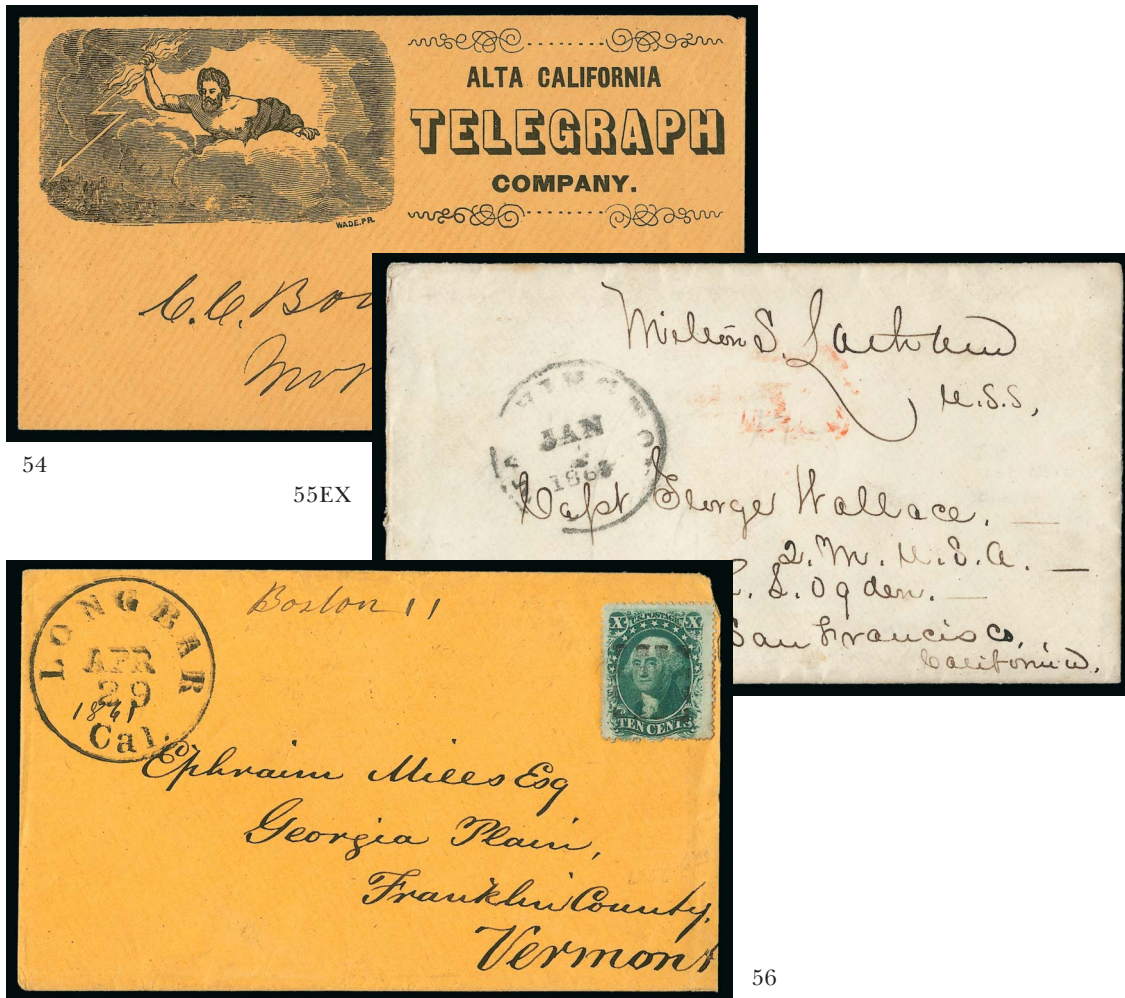 ALTA CALIFORNIA
TELEGRAPH
COMPANY.
WADE.PR.
C.C. Boo
54
55EX
Milton S.
U.S.S.
JAN
186
Capt George Wallace.
2. M. U.S.A.
S. Ogden.
San Francisco,
California.
LONG BAR
APR
29
1861
Cal.
Boston 11
X TEN POSTAGE X
TEN CENTS
Ephraim Mills Esq
Georgia Plain,
Franklin County,
Vermont
56